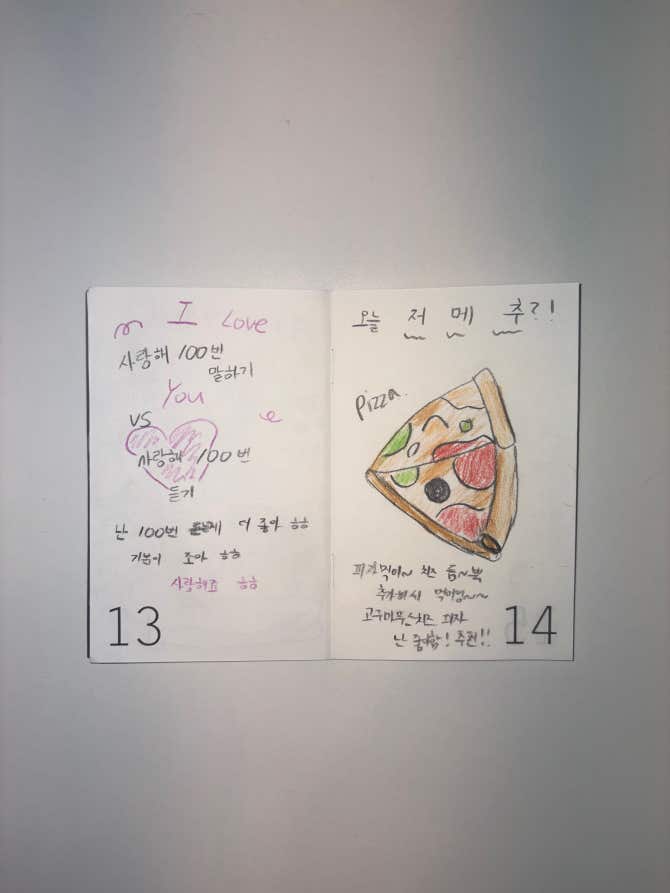 I Love
사랑해 100번
말하기
You
VS
사랑해 100번
듣기
난 100번 듣는게 더 좋아 ㅎㅎ
기분이 조아 ㅎㅎ
사랑해죠 ㅎㅎ
13
오늘 저 메 추?!
Pizza
피자먹어~ 치즈 듬~뿍
추가해서 먹어영~~
고구마무스치즈 피자
난 좋아함! 추천!!
14